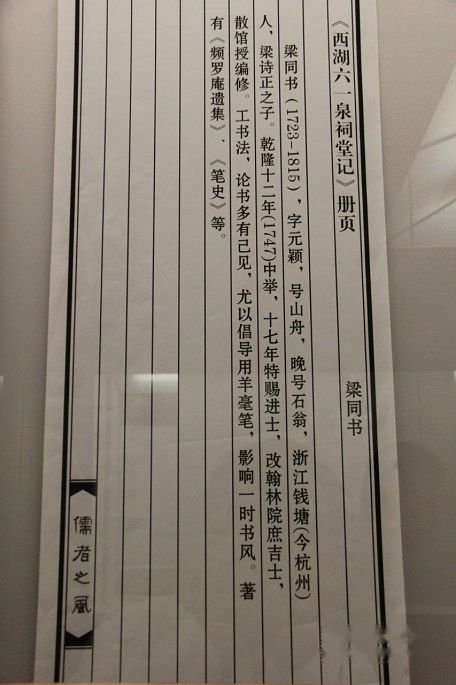 《西湖六一泉祠堂记》册页
梁同书
梁同书(1723-1815)，字元颖，号山舟，晚号石翁，浙江钱塘(今杭州)
人，梁诗正之子。乾隆十二年(1747)中举，十七年特赐进士，改翰林院庶吉士，
散馆授编修。工书法，论书多有己见，尤以倡导用羊毫笔，影响一时书风。著
有《频罗庵遗集》、《笔史》等。
儒者之风